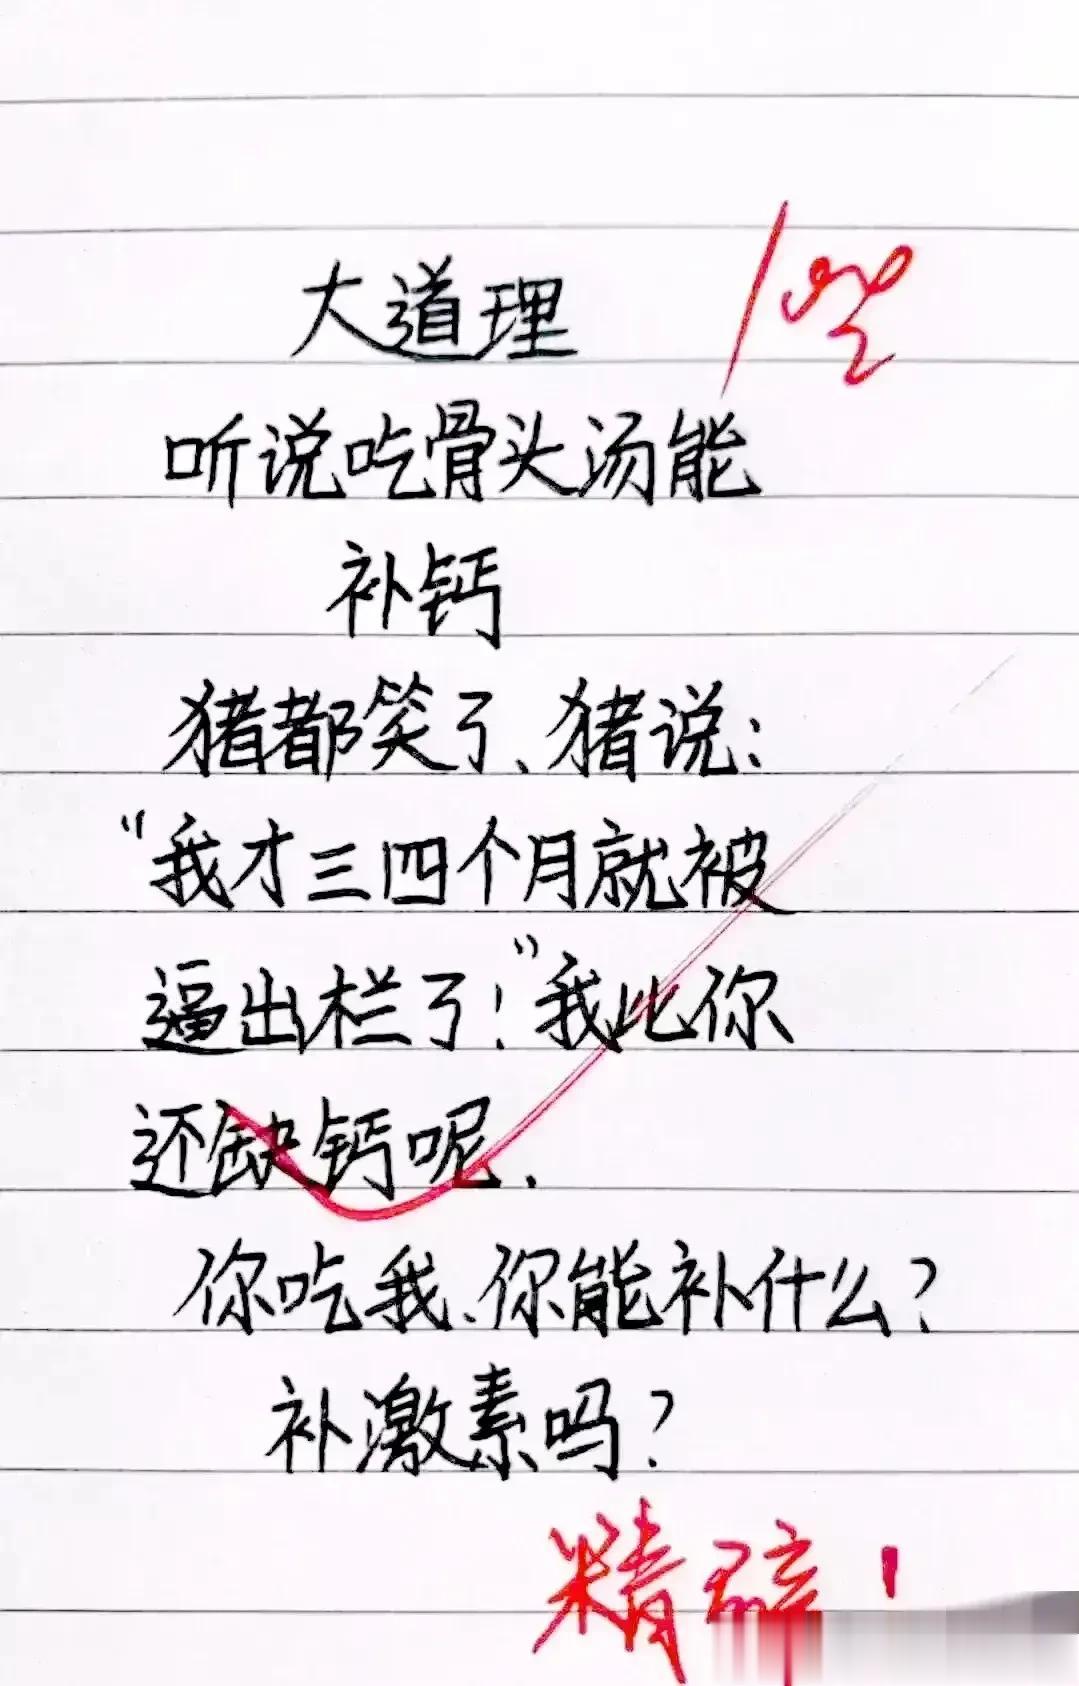 大道理
听说吃骨头汤能
补钙
猪都笑了、猪说：
“我才三四个月就被
逼出栏了！”我比你
还缺钙呢.
你吃我、你能补什么？
补激素吗？
精辟！